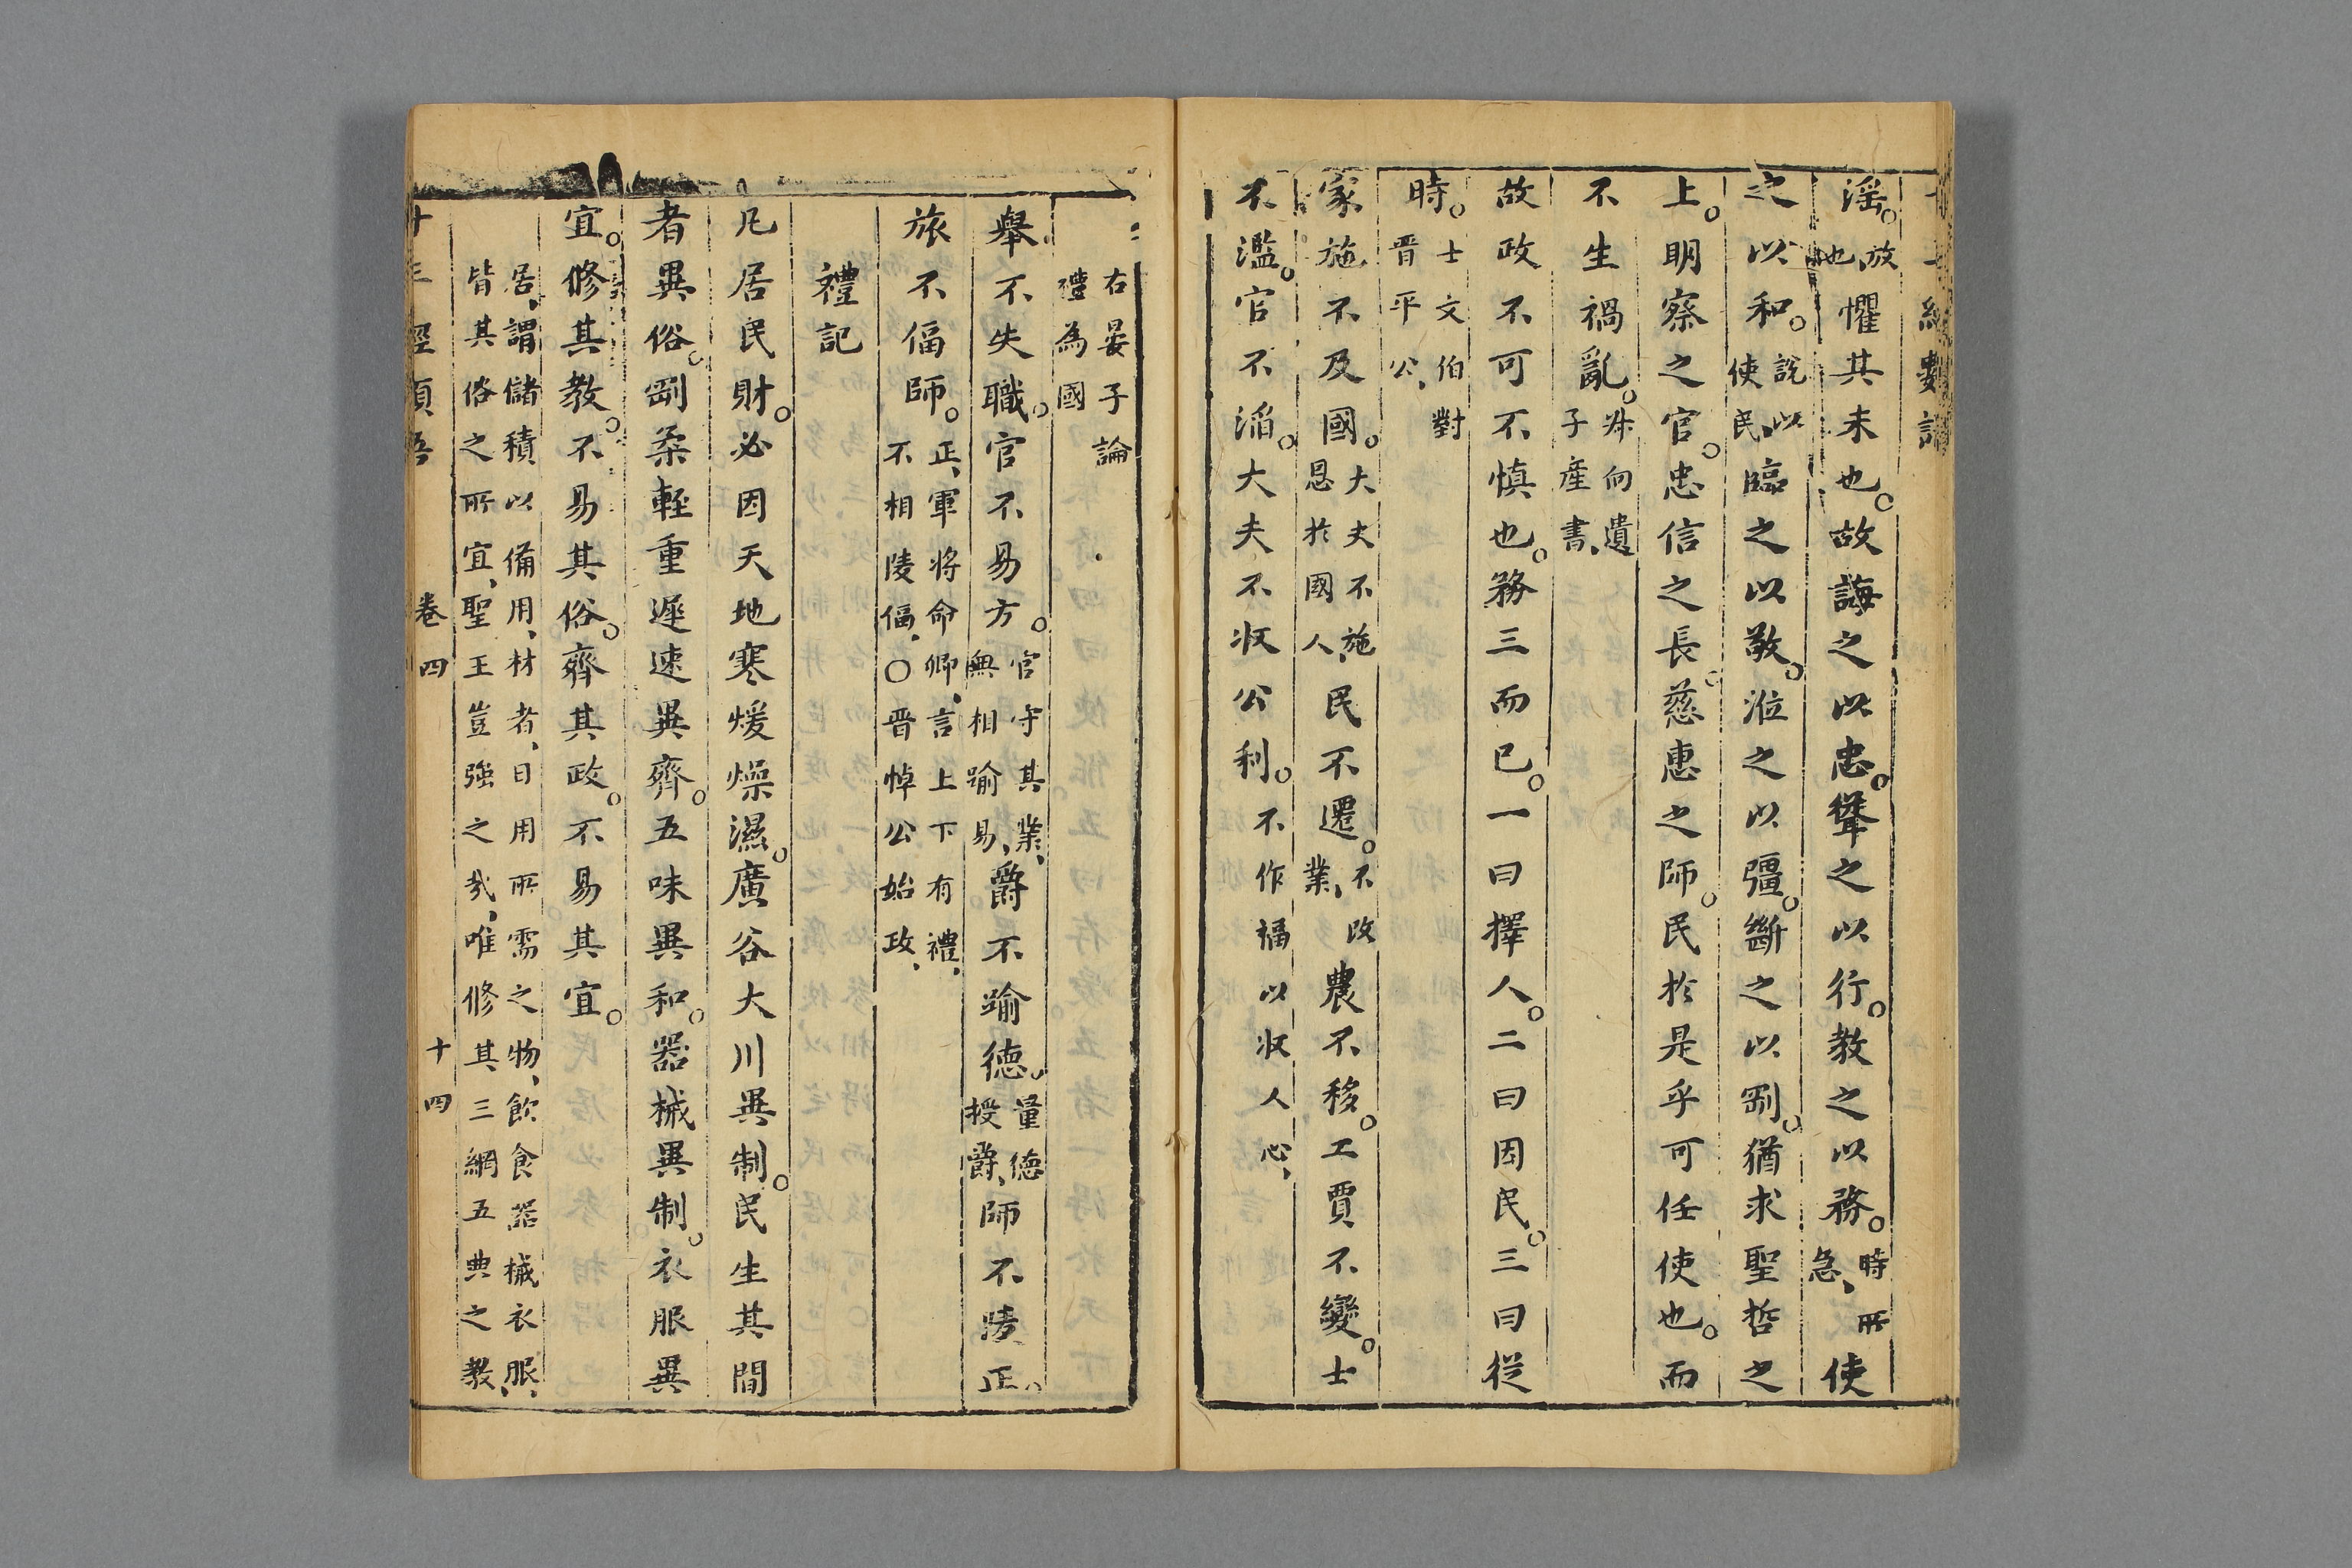 淫。放也、懼其未也。故誨之以忠。聳之以行。教之以務。時所急、使
之以和。說以使民、臨之以敬。涖之以彊。斷之以剛。猶求聖哲之
上。明察之官。忠信之長。慈惠之師。民於是乎可任使也。而
不生禍亂。叔向遺子産書、
故政不可不慎也。務三而已。一曰擇人。二曰因民。三曰從
時。士文伯對晋平公、
家施不及國。大夫不施恩於國人、民不遷。不改業、農不移。工賈不變。士
不濫。官不滔。大夫不収公利。不作福以収人心、
右晏子論禮為國
舉不失職。官不易方。官守其業、無相踰易、爵不踰德。量德授爵、師不陵正。
旅不偪師。正、軍将命卿、言上下有禮、不相陵偪、○晋悼公始政、
禮記
凡居民財。必因天地寒煖燥濕。廣谷大川異制。民生其間
者異俗。剛柔輕重遲速異齊。五味異和。器械異制。衣服異
宜。修其教。不易其俗。齊其政。不易其宜。
居、謂儲積以備用、材者、日用所需之物、飲食器械衣服、
皆其俗之所宜、聖王豈強之哉、唯修其三綱五典之教、
卷四 十四